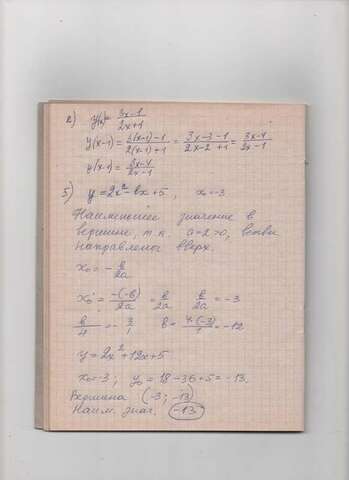 2) y(x)= 3x-1/2x+1
y(x-1) = 3(x-1)-1/2(x-1)+1 = 3x-3-1/2x-2+1 = 3x-4/2x-1
y(x-1) = 3x-4/2x-1
5) y = 2x²-bx+5, x₀=-3
Наименьшее значение в
вершине, т.к. a=2>0, ветви
направлены вверх.
x₀ = -b/2a
x₀ = -(-b)/2a = b/2a b/2a = -3
b/4 = -3/1 b = 4·(-3)/1 = -12
y = 2x²+12x+5
x₀=-3; y₀ = 18-36+5 = -13.
Вершина (-3; -13)
Наим. знач. -13